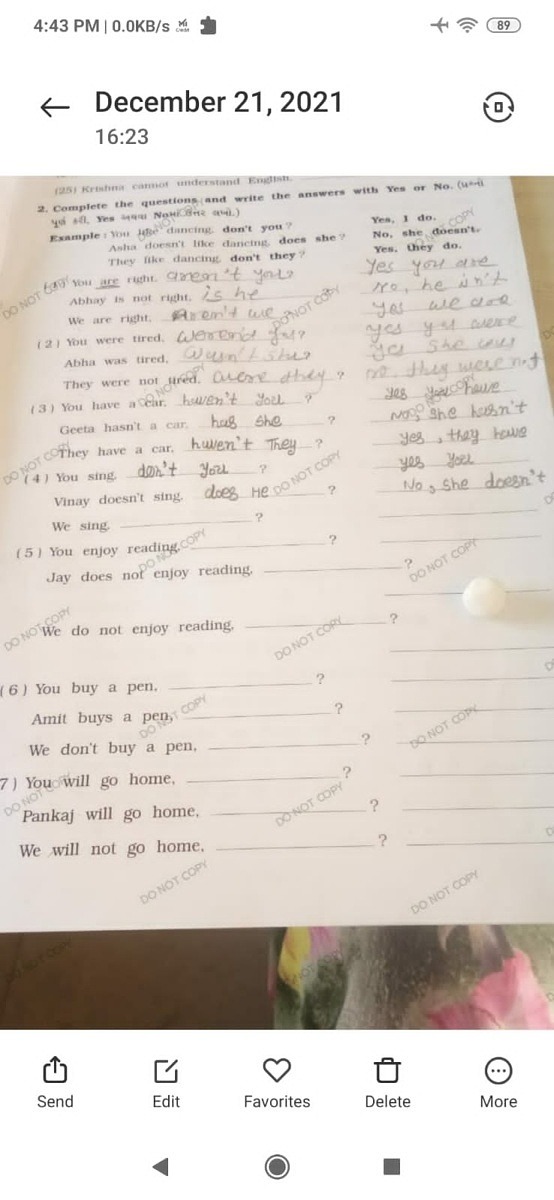 4:43 PM | 0.0KB/s
89
December 21, 2021
16:23
(25) Krishna cannot understand English.
2. Complete the questions and write the answers with Yes or No. (
Yes
Example : You like dancing, don't you ? Yes, I do.
Asha doesn't like dancing, does she ? No, she doesn't.
They like dancing, don't they ? Yes, they do.
You are right, aren't you? Yes you are
Abhay is not right, is he No, he isn't
We are right, Aren't we yes we are
(2) You were tired, you? yes you were
Abha was tired, she? yes she was
They were not tired, were they ? no they were not
(3) You have a car, haven't you ? yes you have
Geeta hasn't a car, has she ? No, she hasn't
They have a car, haven't They ? yes, they have
(4) You sing, don't you ? yes you
Vinay doesn't sing, does He ? No, she doesn't
We sing, ?
(5) You enjoy reading, ?
Jay does not enjoy reading, ?
We do not enjoy reading, ?
(6) You buy a pen, ?
Amit buys a pen, ?
We don't buy a pen, ?
7) You will go home, ?
Pankaj will go home, ?
We will not go home, ?
DO NOT COPY
DO NOT COPY
DO NOT COPY
DO NOT COPY
DO NOT COPY
DO NOT COPY
DO NOT COPY
DO NOT COPY
DO NOT COPY
DO NOT COPY
DO NOT COPY
DO NOT COPY
DO NOT COPY
DO NOT COPY
Send Edit Favorites Delete More